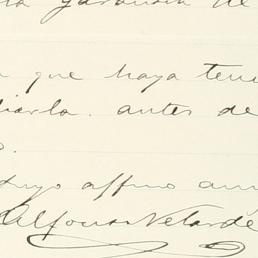 garantia de
que haya teni
diarla. antes de
o.
suyo affmo am
Alfonso Velarde